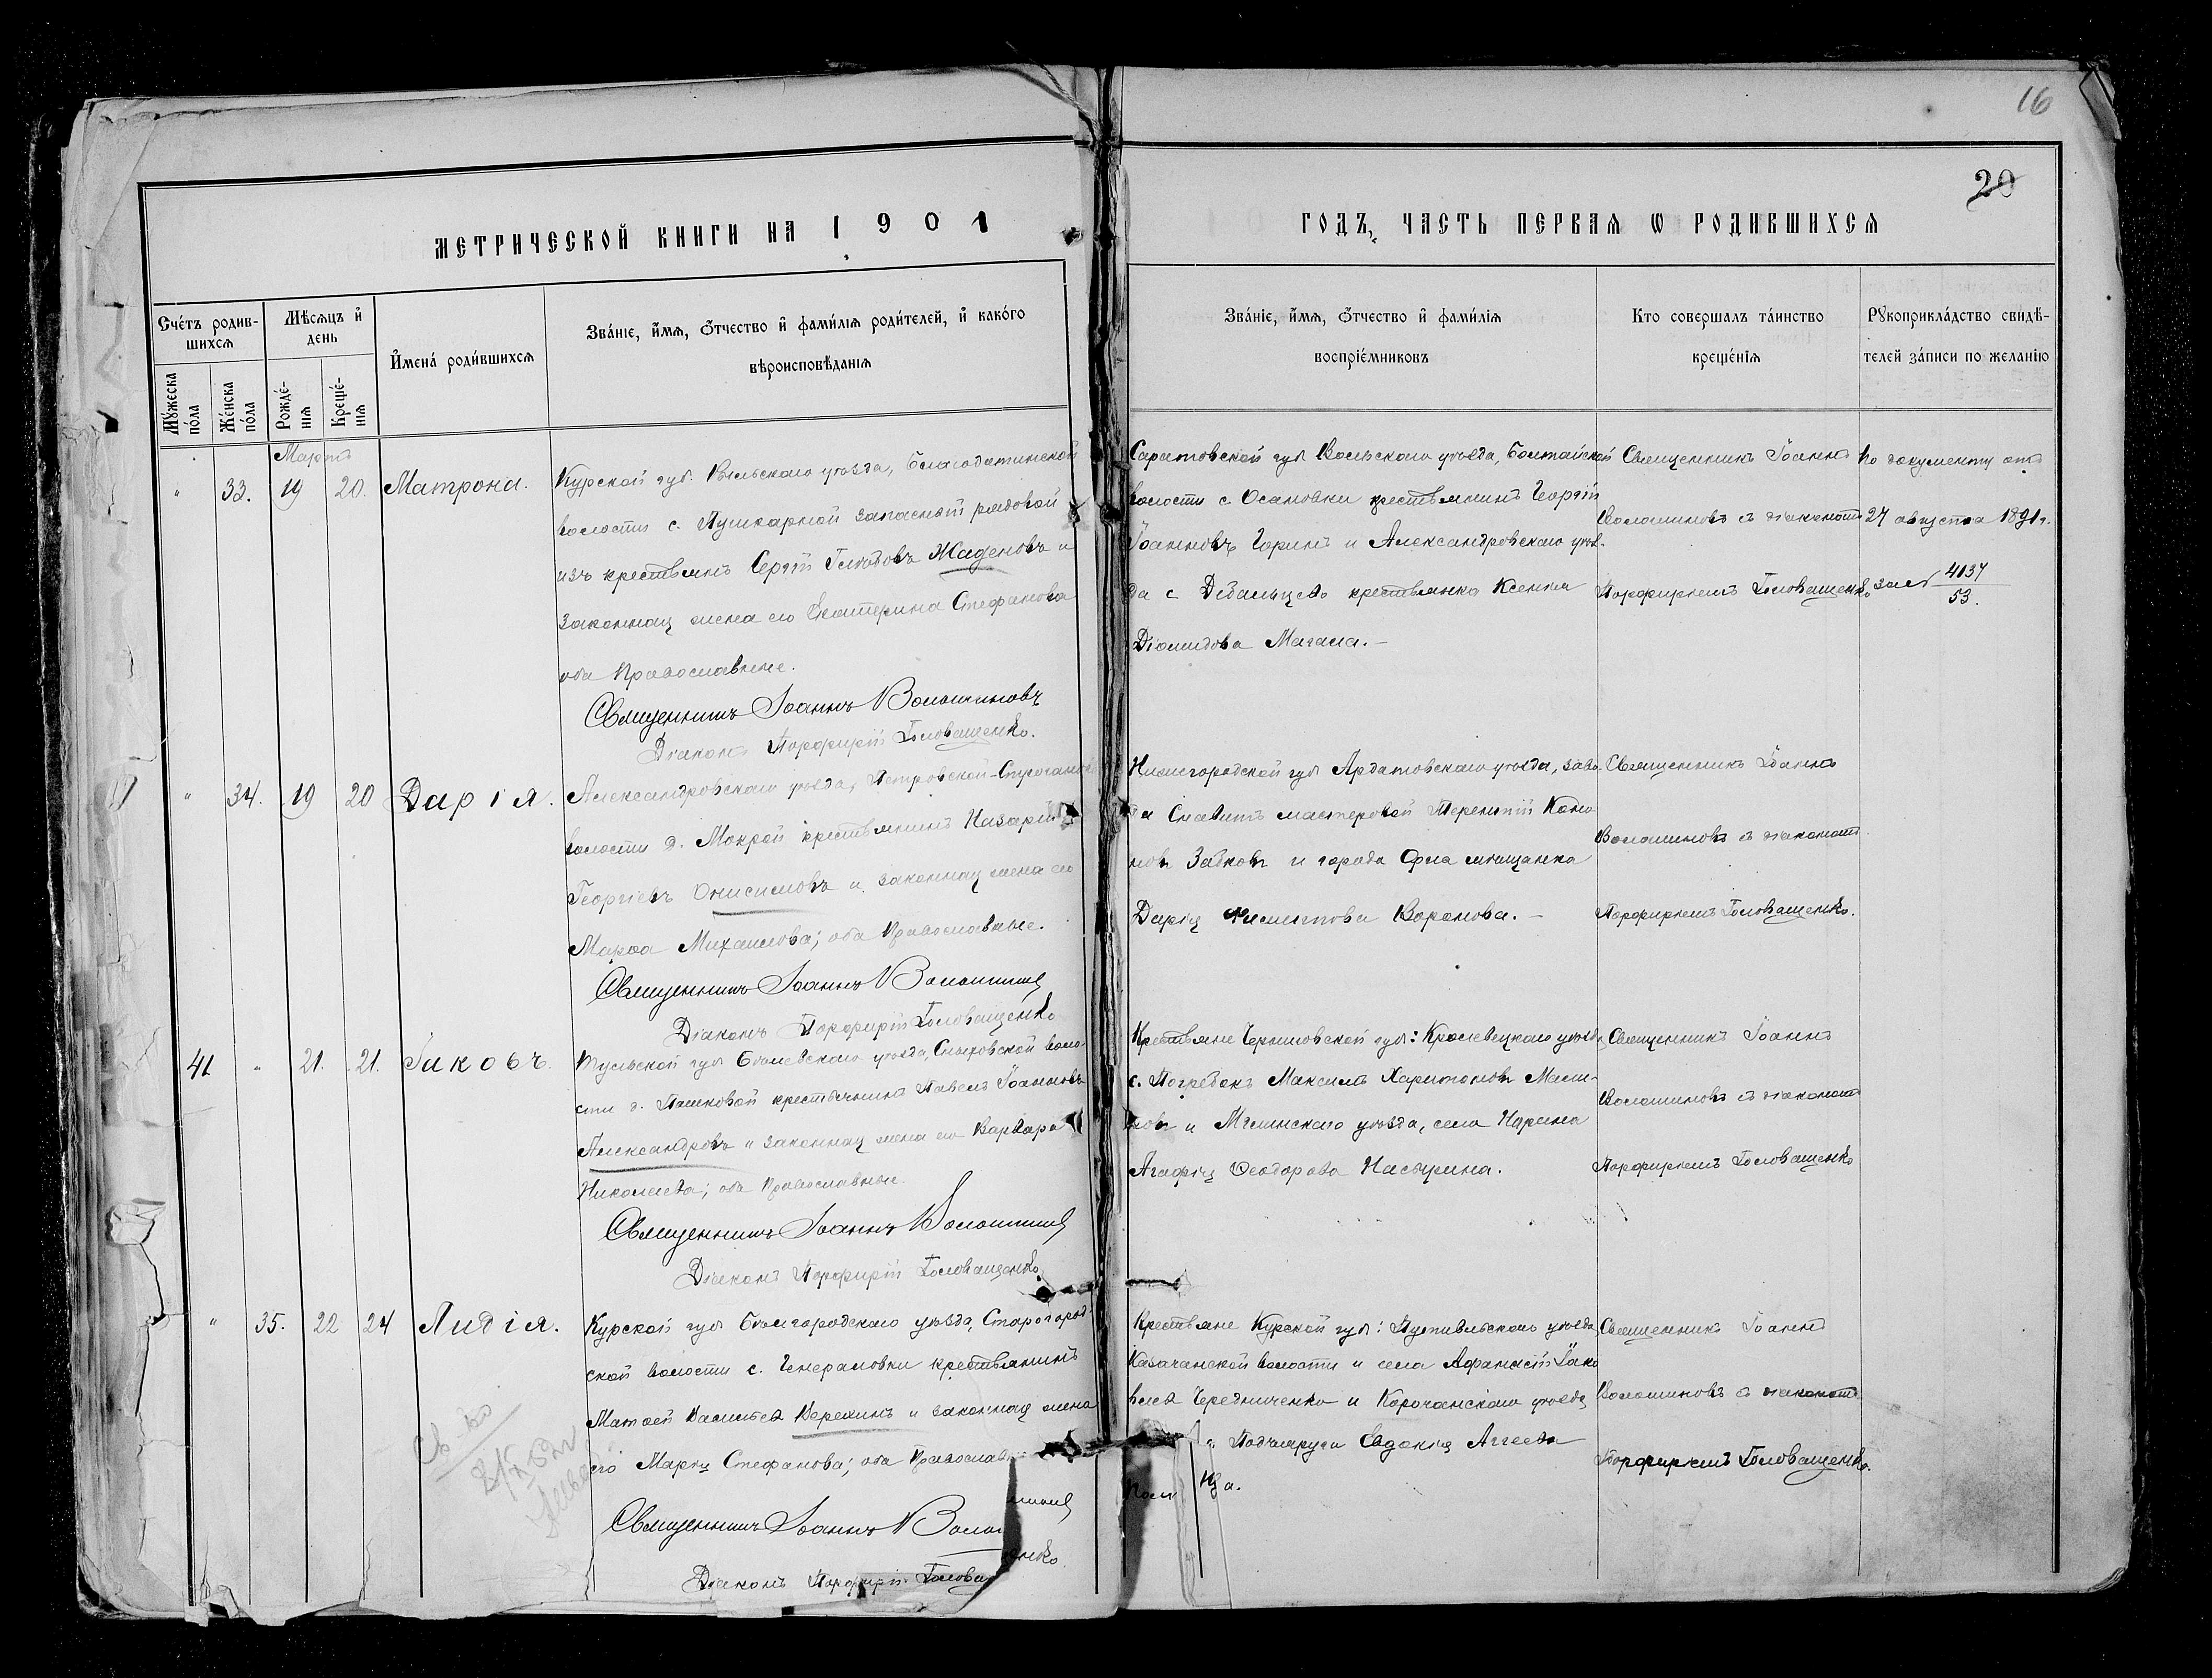 16
20
МЕТРИЧЕСКОЙ КНИГИ НА 1901
ГОДЪ, ЧАСТЬ ПЕРВАЯ Ѡ РОДИВШИХСЯ
Счётъ родив-
шихся
Мѣсяцъ и
день
Имена родившихся
Званіе, имя, отчество и фамилія родителей, и какого
вѣроисповѣданія
Мужеска пола
Женска пола
Рожде-
нія
Креще-
нія
Званіе, имя, отчество и фамилія
воспріемниковъ
Кто совершалъ таинство
крещенія
Рукоприкладство свидѣ-
телей записи по желанію
Мартъ
" 33. 19 20. Матрона.
Курской губ. Рыльскаго уѣзда, Благодатинской
волости с. Пушкарной запасной рядовой
изъ крестьянъ Сергій Глѣбовъ Жаденовъ и
законная жена его Екатерина Стефанова
оба Православные.
Священникъ Іоаннъ Волошиновъ
Діаконъ Порфирій Головащенко.
Саратовской губ Вольскаго уѣзда, Болтайской
волости с. Осановки крестьянинъ Георгій
Іоанновъ Горинъ и Александровскаго уѣз-
да с Дебальцево крестьянка Ксенія
Діомидова Магала. –
Священникъ Іоаннъ
Волошиновъ съ діакономъ
Порфиріемъ Головащенко
По документу отъ
27 августа 1891 г.
за № 4137
53.
" 34. 19 20 Дарія.
Александровскаго уѣзда, Петровской-
волости д. Мокрой крестьянинъ Назарій
Георгіевъ Онисимовъ и законная жена его
Марѳа Михаилова; оба Православные.
Священникъ Іоаннъ Волошинов
Діаконъ Порфирій Головащенко
Нижегородской губ Ардатовскаго уѣзда, заво-
да мастеровой Терентій Коно
новъ Зябковъ и города Орла мѣщанка
Дарія Филиппова Воронова. –
Священникъ Іоаннъ
Волошиновъ съ діакономъ
Порфиріемъ Головащенко.
41 " 21. 21. Іаковъ.
Тульской губ Бѣлевскаго уѣзда, воло-
сти д. Пашковой крестьянинъ Павелъ Іоанновъ
Александровъ и законная жена его Варвара
Николаева; оба Православные
Священникъ Іоаннъ Волошинов
Діаконъ Порфирій Головащенко
Крестьяне Черниговской губ: Кролевецкаго уѣзда
с. Погребокъ Максимъ Харитоновъ Мали-
новъ и Мглинскаго уѣзда, села
Агафія Ѳеодорова
Священникъ Іоаннъ
Волошиновъ съ діакономъ
Порфиріемъ Головащенко
" 35. 22 24 Лидія.
Курской губ Бѣлгородскаго уѣзда, Старогород-
ской волости с. Генераловки крестьянинъ
Матѳей Васильевъ Верехинъ и законная жена
его Марія Стефанова; оба Православ
Священникъ Іоаннъ Воло
Діаконъ Порфирій Голова
Крестьяне Курской губ: Путивльскаго уѣзда
Казачанской волости и села Аѳанасій Іако
влевъ Чередниченко и Корочанскаго уѣзда
Евдокія Аггеева
Священникъ Іоаннъ
Волошиновъ съ діакономъ
Порфиріемъ Головащенко.